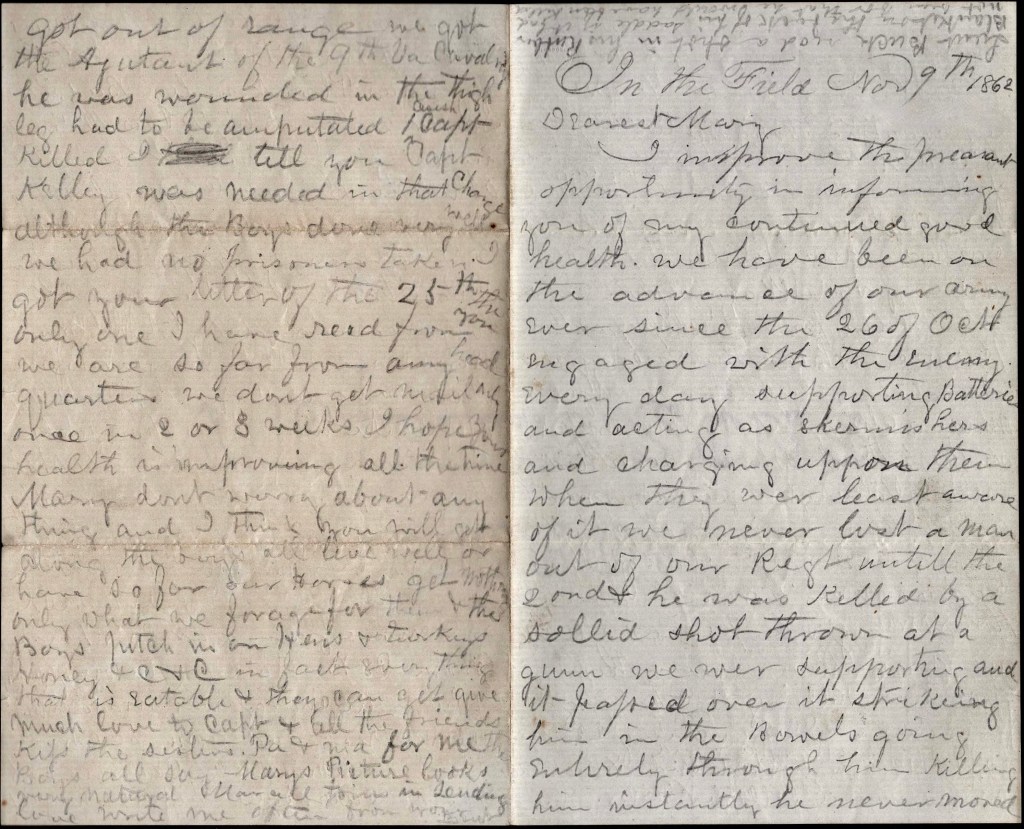 In the Field Nov 9th 1862
Dearest Mary
I improve the preasant
opportunity in informing
you of my continued good
health. we have been on
the advance of our army
ever since the 26 of Oct
engaged with the enemy.
every day supporting Batteries
and acting as skermishers
and charging uppon them
when they wer least aware
of it we never lost a man
out of our Regt untill the
2ond & he was Killed by a
sollid shot thrown at a
gunn we wer supporting and
it passed over it strikeing
him in the Bowels going
entirely through him Killing
him instantly he never moved
got out of range we got
the Ajutant of the 9th Va Cavalry
he was wounded in the thigh
leg had to be amputated 1 Capt
Killed I tell you Capt
Kelley was needed in that Charge
although the Boys done very well
we had no prisoners taken. I
got your letter of the 25th the
only one I have recd from you
we are so far from any head
quarters we dont get mail only
once in 2 or 3 weeks I hope your
health is improving all the time
Mary dont worry about any
thing and I think you will get
along the boys all live well or
have so far our Horses get nothing
only what we forage for them & the
Boys pitch in on Hens & turkeys
Honey & C & C in fact every thing
that is eatable & they can get give
much love to Capt & all the friends
Kiss the sisters Pa & ma for me the
Boys all say Marys Picture looks
very natural join in sending
love write me often
Lieut Buck had a shot in his Rubber
Blanket on his saddle